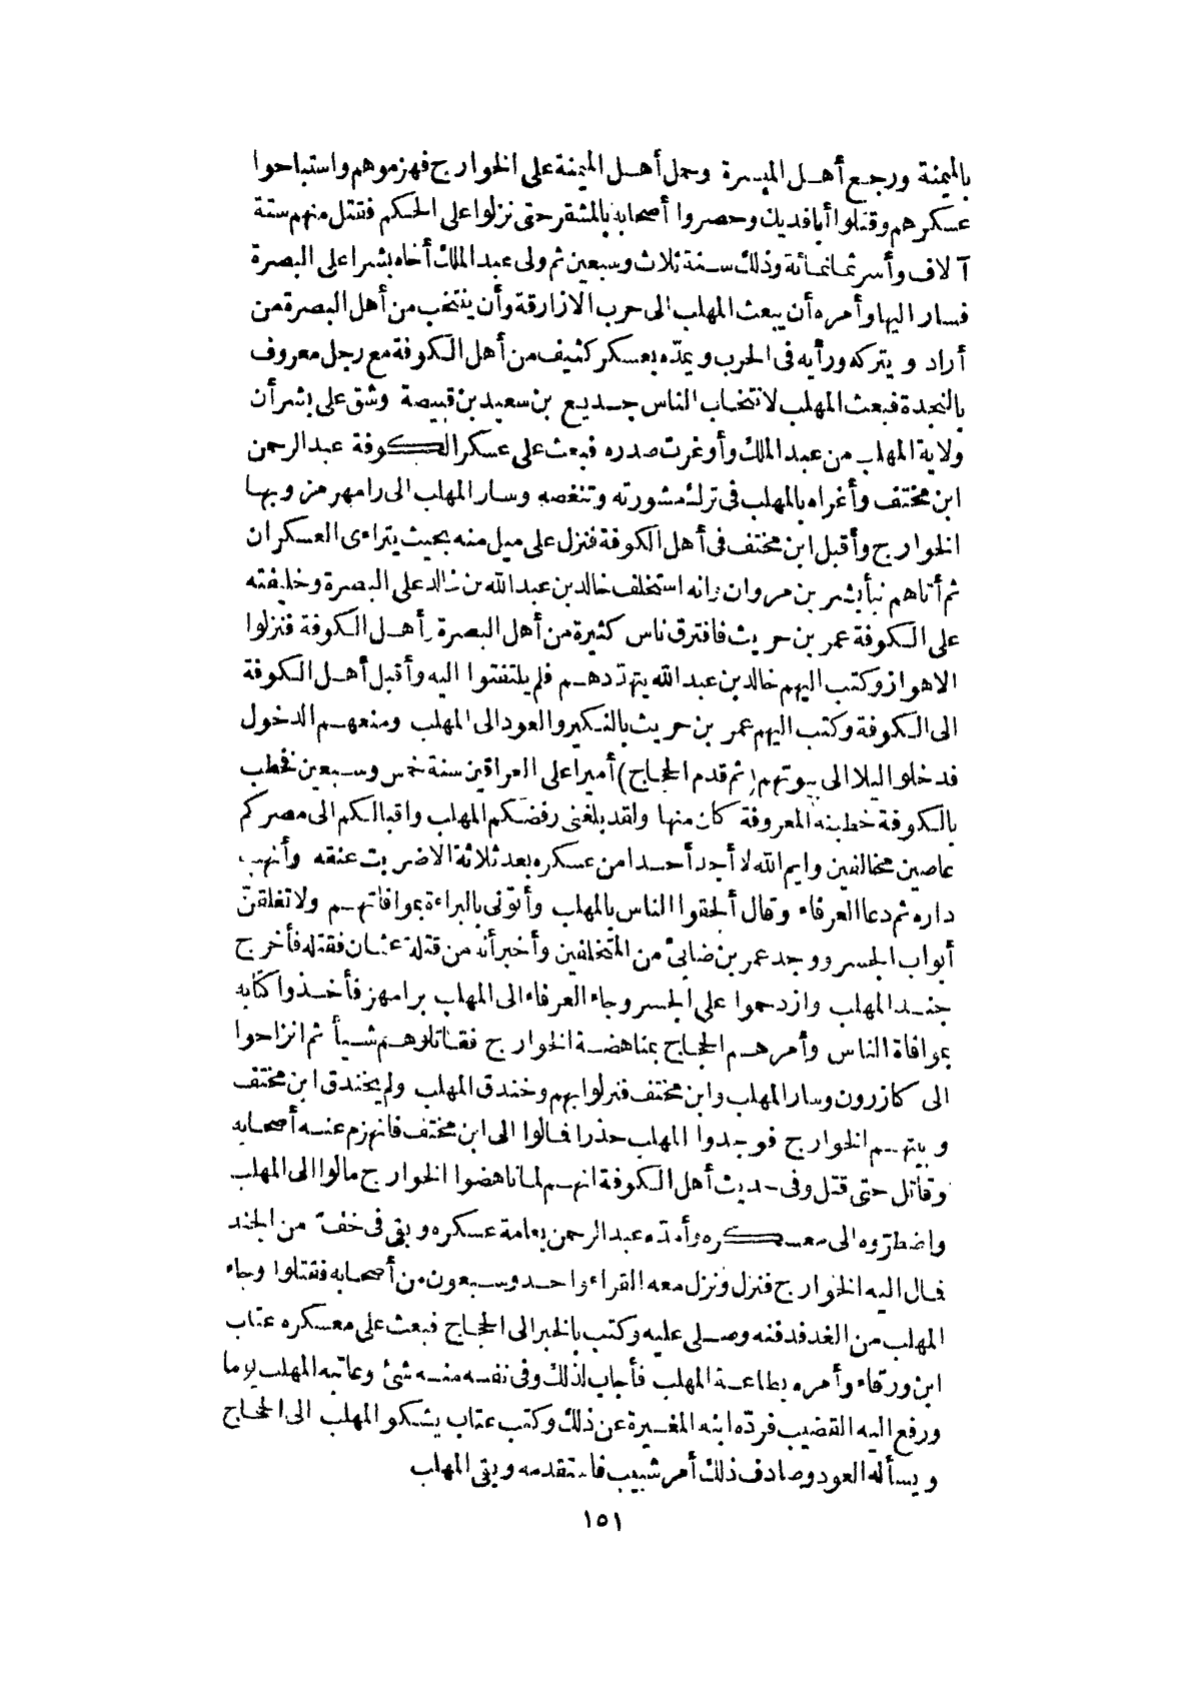 بالميمنة ورجع أهل الميسرة وحمل أهل الميمنة على الخوارج فهزموهم واستباحوا
عسكرهم وقتلوا أبا فديك وحصروا أصحابه بالمشقر حتى نزلوا على الحكم فقتل منهم ستة
آلاف وأسر ثمانمائة وذلك سنة ثلاث وسبعين ثم ولى عبد الملك أخاه بشرا على البصرة
فسار اليها وأمره أن يبعث المهلب الى حرب الازارقة وأن ينتخب من أهل البصرة من
أراد ويتركه ورأيه فى الحرب ويمدّه بعسكر كثيف من أهل الكوفة مع رجل معروف
بالنجدة فبعث المهلب لانتخاب الناس جديع بن سعيد بن قبيصة وشق على بشر أن
ولاية المهلب من عبد الملك وأوغرت صدره فبعث على عسكر الكوفة عبد الرحمن
ابن مختف وأغراه بالمهلب فى ترك مشورته وتنغصه وسار المهلب الى رامهرمز وبها
الخوارج وأقبل ابن مختف فى أهل الكوفة فنزل على ميل منه بحيث يتراءى العسكران
ثم أتاهم نبأ بشر بن مروان وانه استخلف خالد بن عبد الله بن خالد على البصرة وخليفته
على الكوفة عمر بن حريث فافترق ناس كثيرة من أهل البصرة وأهل الكوفة فنزلوا
الاهواز وكتب اليهم خالد بن عبد الله يتهدّدهم فلم يلتفتوا اليه وأقبل أهل الكوفة
الى الكوفة وكتب اليهم عمر بن حريث بالنكير والعود الى المهلب ومنعهم الدخول
فدخلوا ليلا الى بيوتهم (ثم قدم الحجاج) أميرا على العراقين سنة خمس وسبعين فخطب
بالكوفة خطبته المعروفة كان منها ولقد بلغنى رفضكم المهلب واقبالكم الى مصركم
عاصين مخالفين وايم الله لا أجد أحدا من عسكره بعد ثلاثة الا ضربت عنقه وأنهب
داره ثم دعا العرفاء وقال ألحقوا الناس بالمهلب وأتوّنى بالبراءة بموافاتهم ولا تغلقنّ
أبواب الجسر ووجد عمر بن ضابئ من المتخلفين وأخبر أنه من قتلة عثمان فقتله فأخرج
جند المهلب وازدحموا على الجسر وجاء العرفاء الى المهلب برامهز فأخذوا كتابه
بموافاة الناس وأمرهم الحجاج بمناهضة الخوارج فقاتلوهم شيأ ثم انزاحوا
الى كازرون وسار المهلب وابن مختف فنزلوا بهم وخندق المهلب ولم يخندق ابن مختف
وبيتهم الخوارج فوجدوا المهلب حذرا فمالوا الى ابن مختف فانهزم عنه أصحابه
وقاتل حتى قتل وفى حديث أهل الكوفة انهم لما ناهضوا الخوارج مالوا الى المهلب
واضطرّوه الى معسكره وأمدّه عبد الرحمن بعامة عسكره وبقى فى خف من الجند
فمال اليه الخوارج فنزل ونزل معه القراء واحد وسبعون من أصحابه فقتلوا وجاء
المهلب من الغد فدفنه وصلى عليه وكتب بالخبر الى الحجاج فبعث على معسكره عتاب
ابن ورقاء وأمره بطاعة المهلب فأجاب لذلك وفى نفسه منه شئ وعاتبه المهلب يوما
ورفع اليه القضيب فردّه ابنه المغيرة عن ذلك وكتب عتاب يشكو المهلب الى الحجاج
ويسأله العود وصادف ذلك أمر شبيب فاستقدمه وبقى المهلب
١٥١